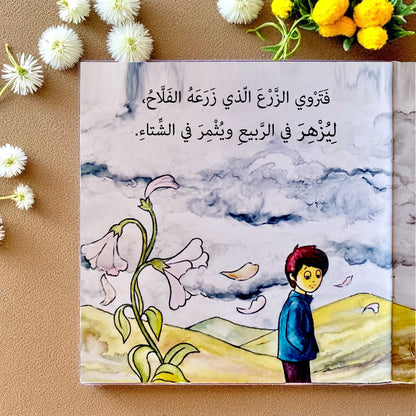 فَتَرْوي الزَّرْعَ الّذي زَرَعَهُ الفَلَّاحُ،
لِيُزْهِرَ في الرَّبيعِ ويُثْمِرَ في الشِّتاءِ.